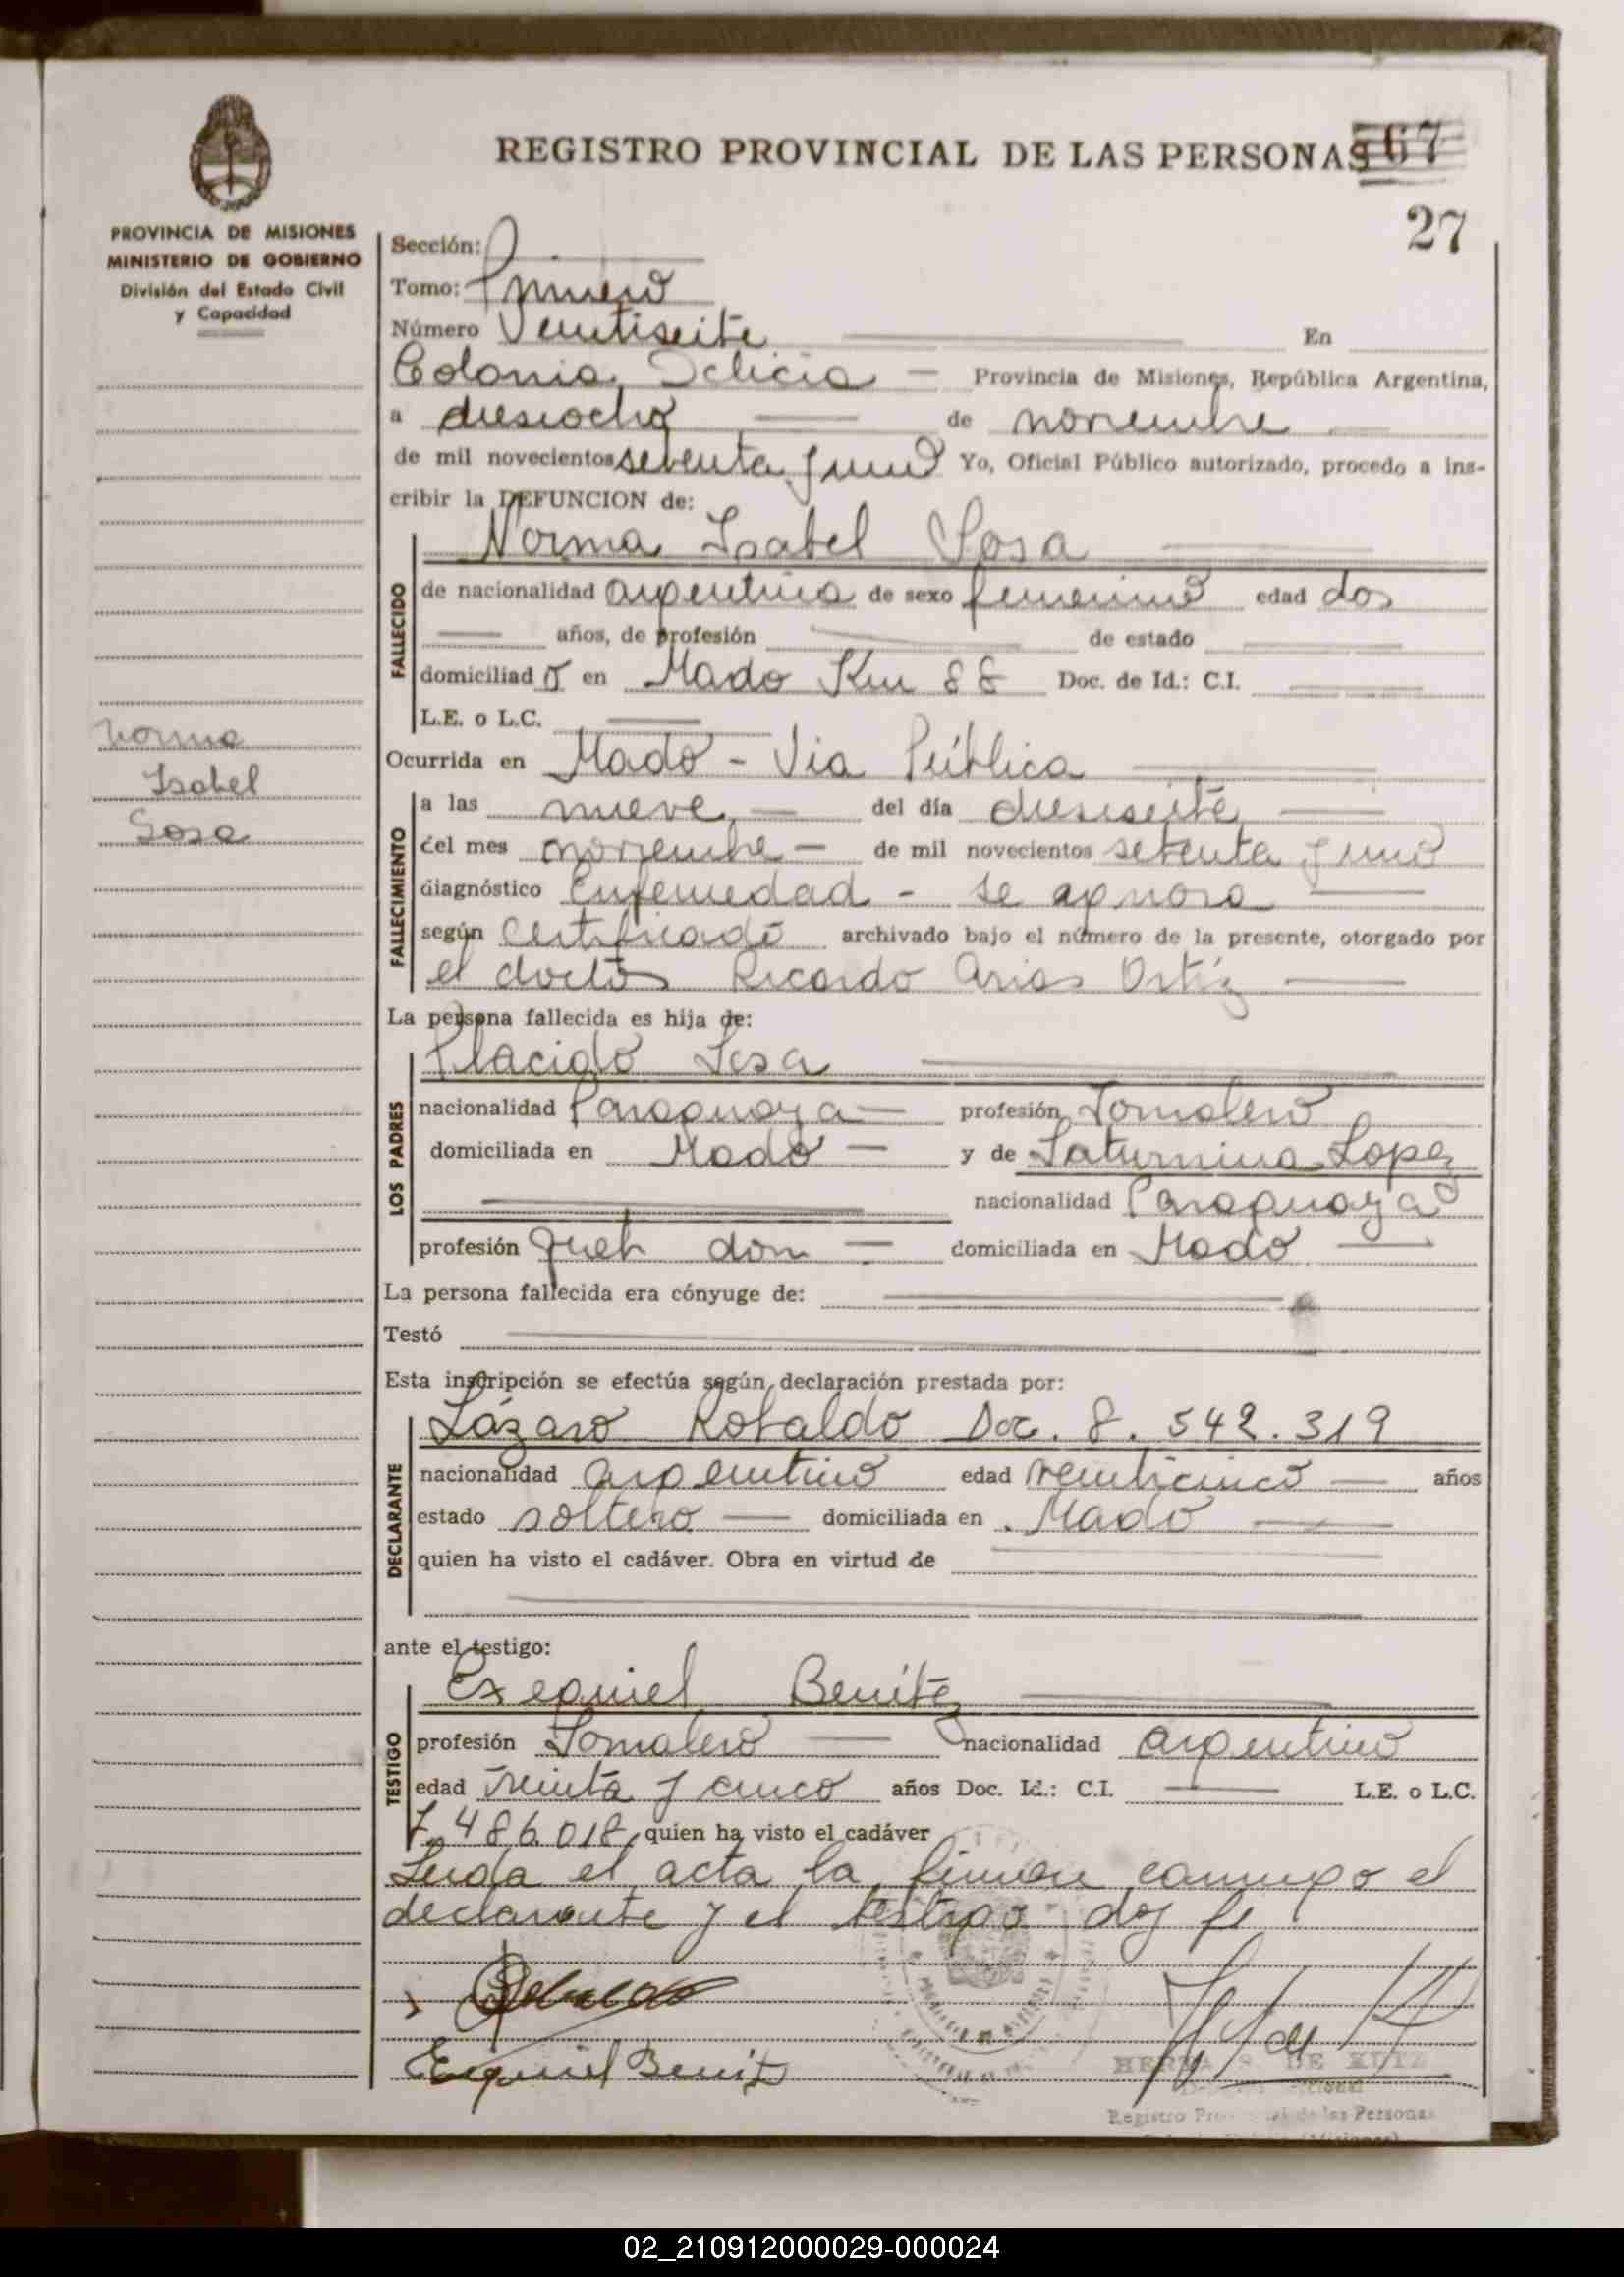 REGISTRO PROVINCIAL DE LAS PERSONAS 67
27
PROVINCIA DE MISIONES
MINISTERIO DE GOBIERNO
División del Estado Civil
y Capacidad
Norma
Isabel
Sosa
Sección:
Tomo: Primero
Número Veintisiete En
Colonia Delicia — Provincia de Misiones, República Argentina,
a diesiocho de noviembre
de mil novecientos setenta y uno Yo, Oficial Público autorizado, procedo a ins-
cribir la DEFUNCION de:
Norma Isabel Sosa
FALLECIDO
de nacionalidad argentina de sexo femenino edad dos
años, de profesión de estado
domiciliad o en Mado Km 88 Doc. de Id.: C.I.
L.E. o L.C.
Ocurrida en Mado - Via Pública
FALLECIMIENTO
a las nueve del día diesisiete
del mes noviembre — de mil novecientos setenta y uno
diagnóstico Enfermedad - se ignora
según Certificado archivado bajo el número de la presente, otorgado por
el doctor Ricardo Arias Ortíz
La persona fallecida es hija de:
LOS PADRES
Placido Sosa
nacionalidad Paraguaya — profesión Jornalero
domiciliada en Mado — y de Saturnina Lopez
nacionalidad Paraguaya
profesión Queh dom — domiciliada en Mado
La persona fallecida era cónyuge de:
Testó
Esta inscripción se efectúa según declaración prestada por:
DECLARANTE
Lázaro Robaldo Doc. 8.542.319
nacionalidad argentino edad veinticinco — años
estado soltero — domiciliada en Mado
quien ha visto el cadáver. Obra en virtud de
ante el testigo:
TESTIGO
Exequiel Benítez
profesión Jornalero nacionalidad argentino
edad treinta y cinco años Doc. Id.: C.I. L.E. o L.C.
7.486.018, quien ha visto el cadáver
Leida el acta la firman conmigo el
declarante y el testigo doy fe
Exequiel Benitz
DE RUIZ
Registro Provincial de las Personas
02_210912000029-000024